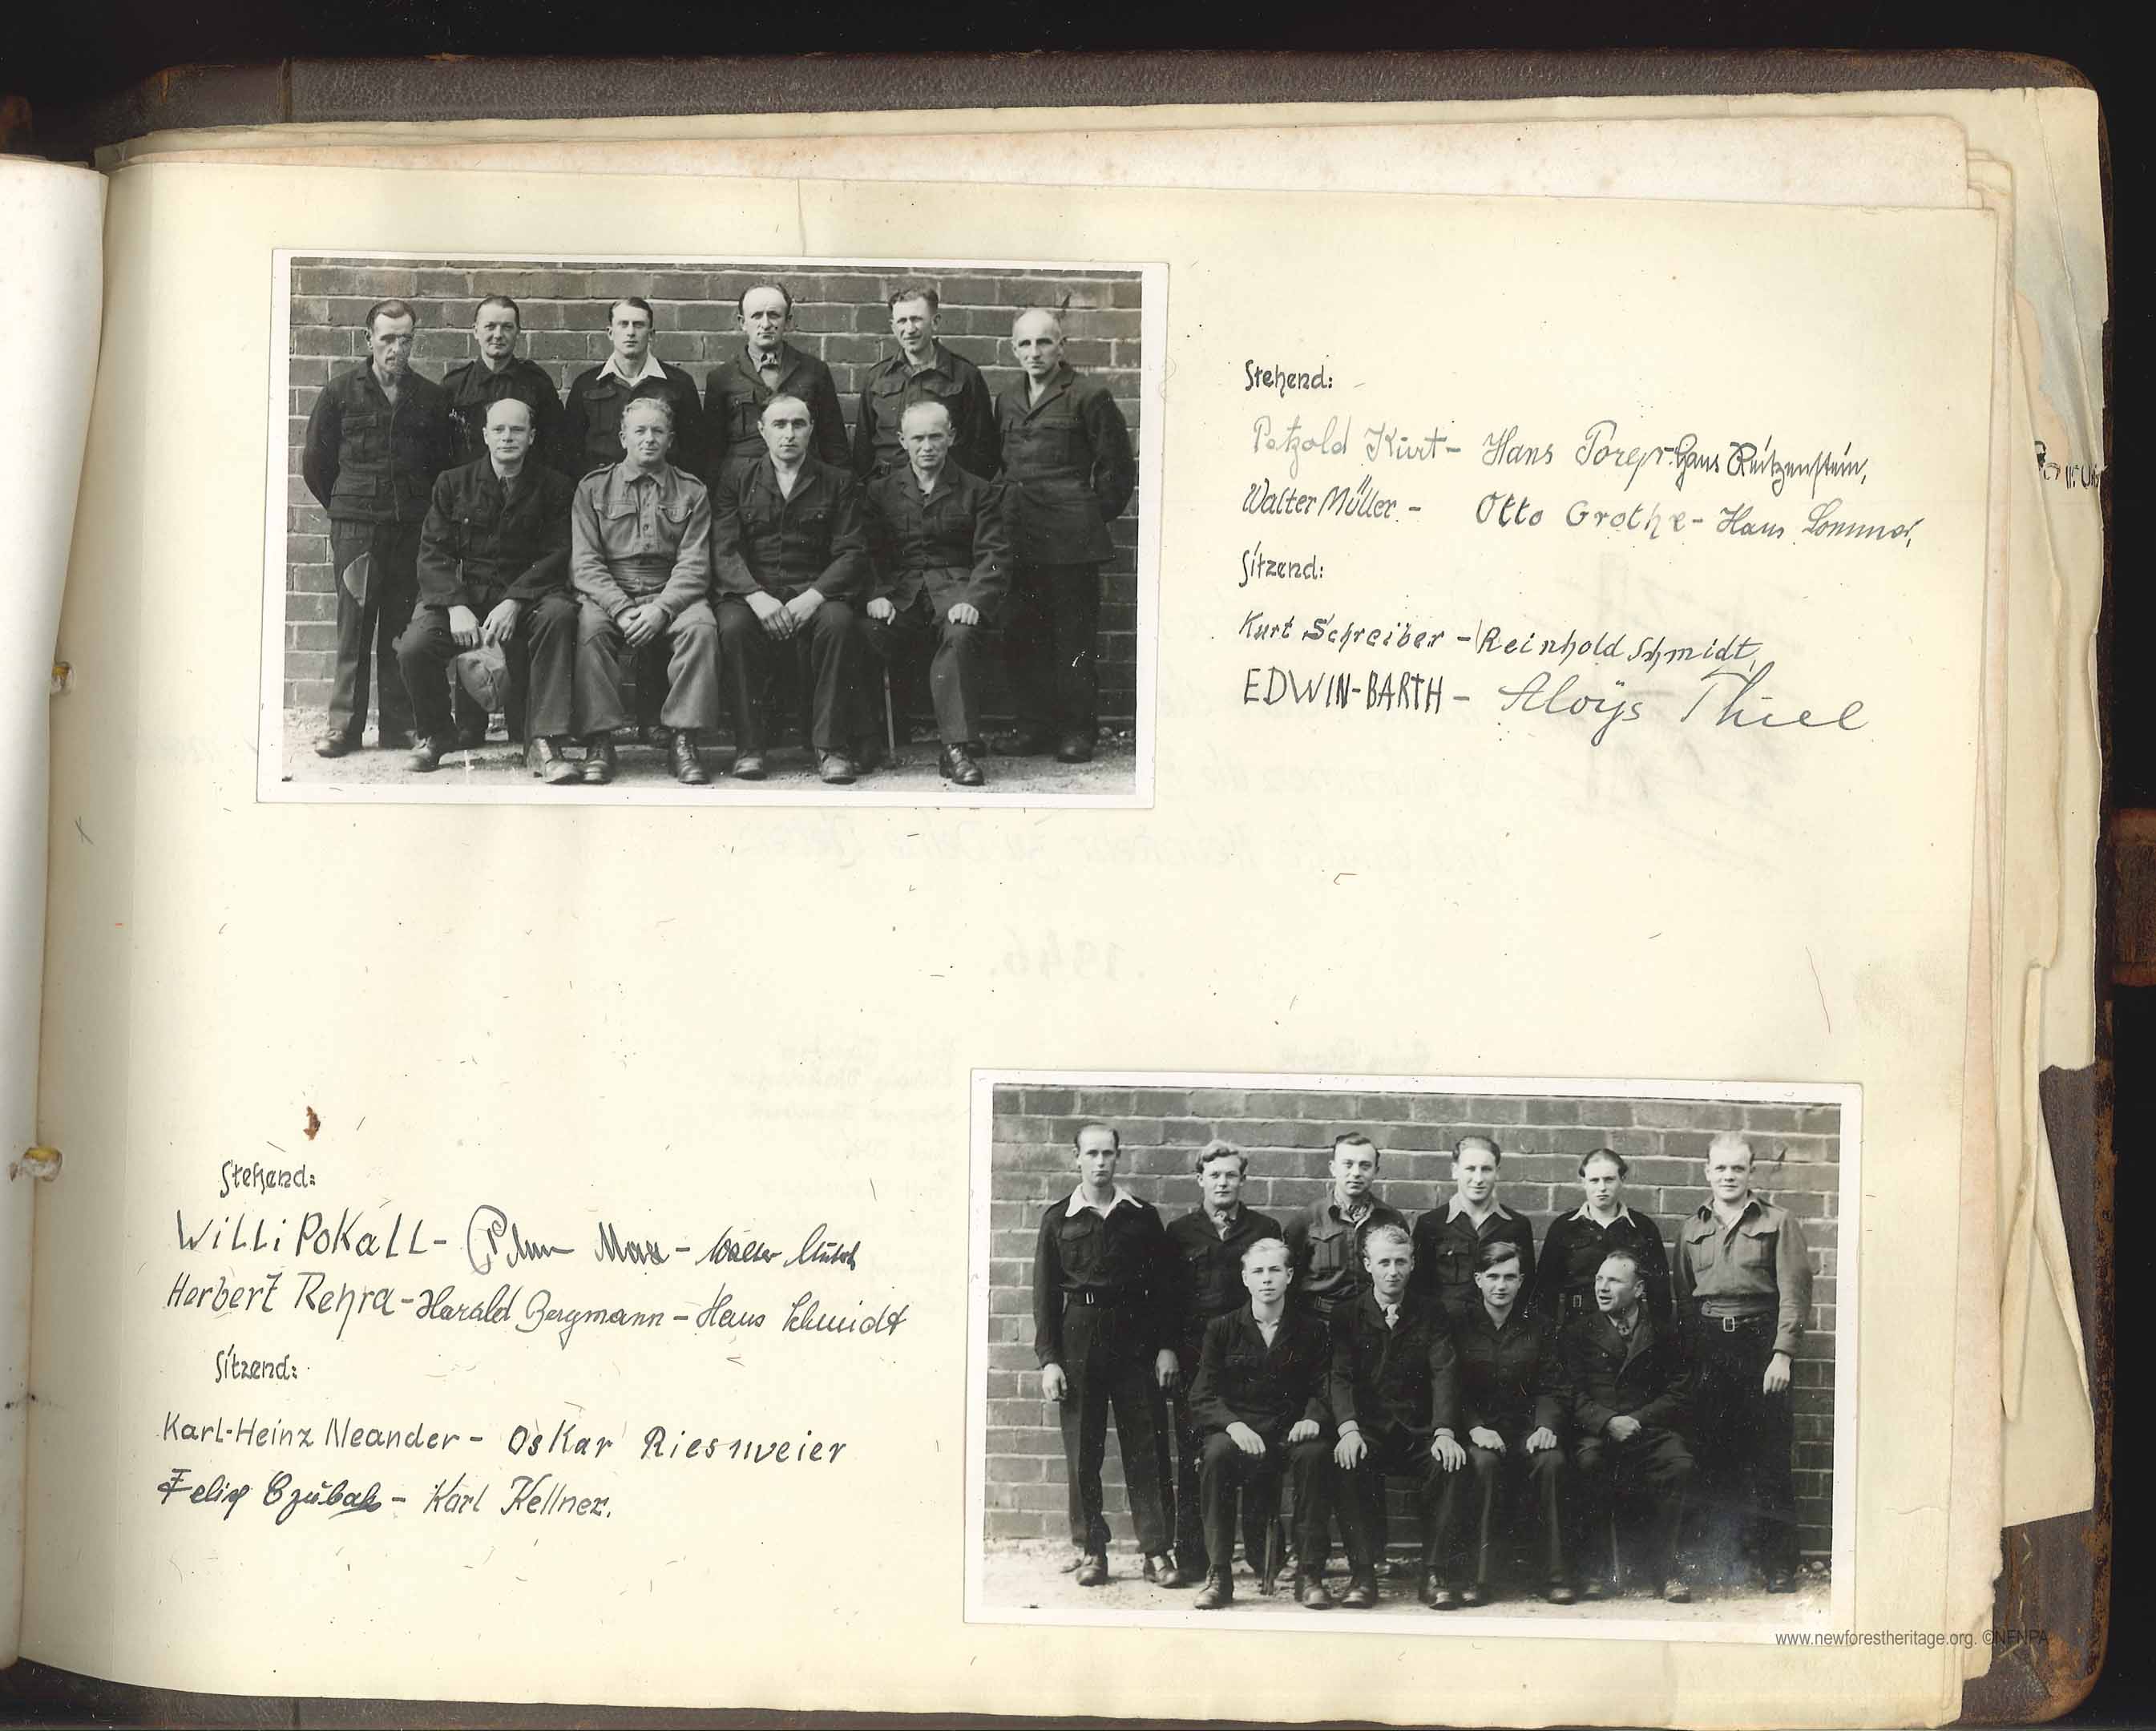 Stehend:
Petzold Kurt - Hans Torepr - Hans Reitzenstein,
Walter Müller - Otto Grothe - Hans Sommer,
Sitzend:
Kurt Schreiber - Reinhold Schmidt,
EDWIN-BARTH - Aloÿs Thiel
1946.
Stehend:
WiLLi POKaLL - Max - Walter
Herbert Rehra - Harald Bergmann - Hans Schmidt
Sitzend:
Karl-Heinz Neander - Oskar Riesmeier
Felix Czubak - Karl Kellner.
www.newforestheritage.org. ©NFNPA